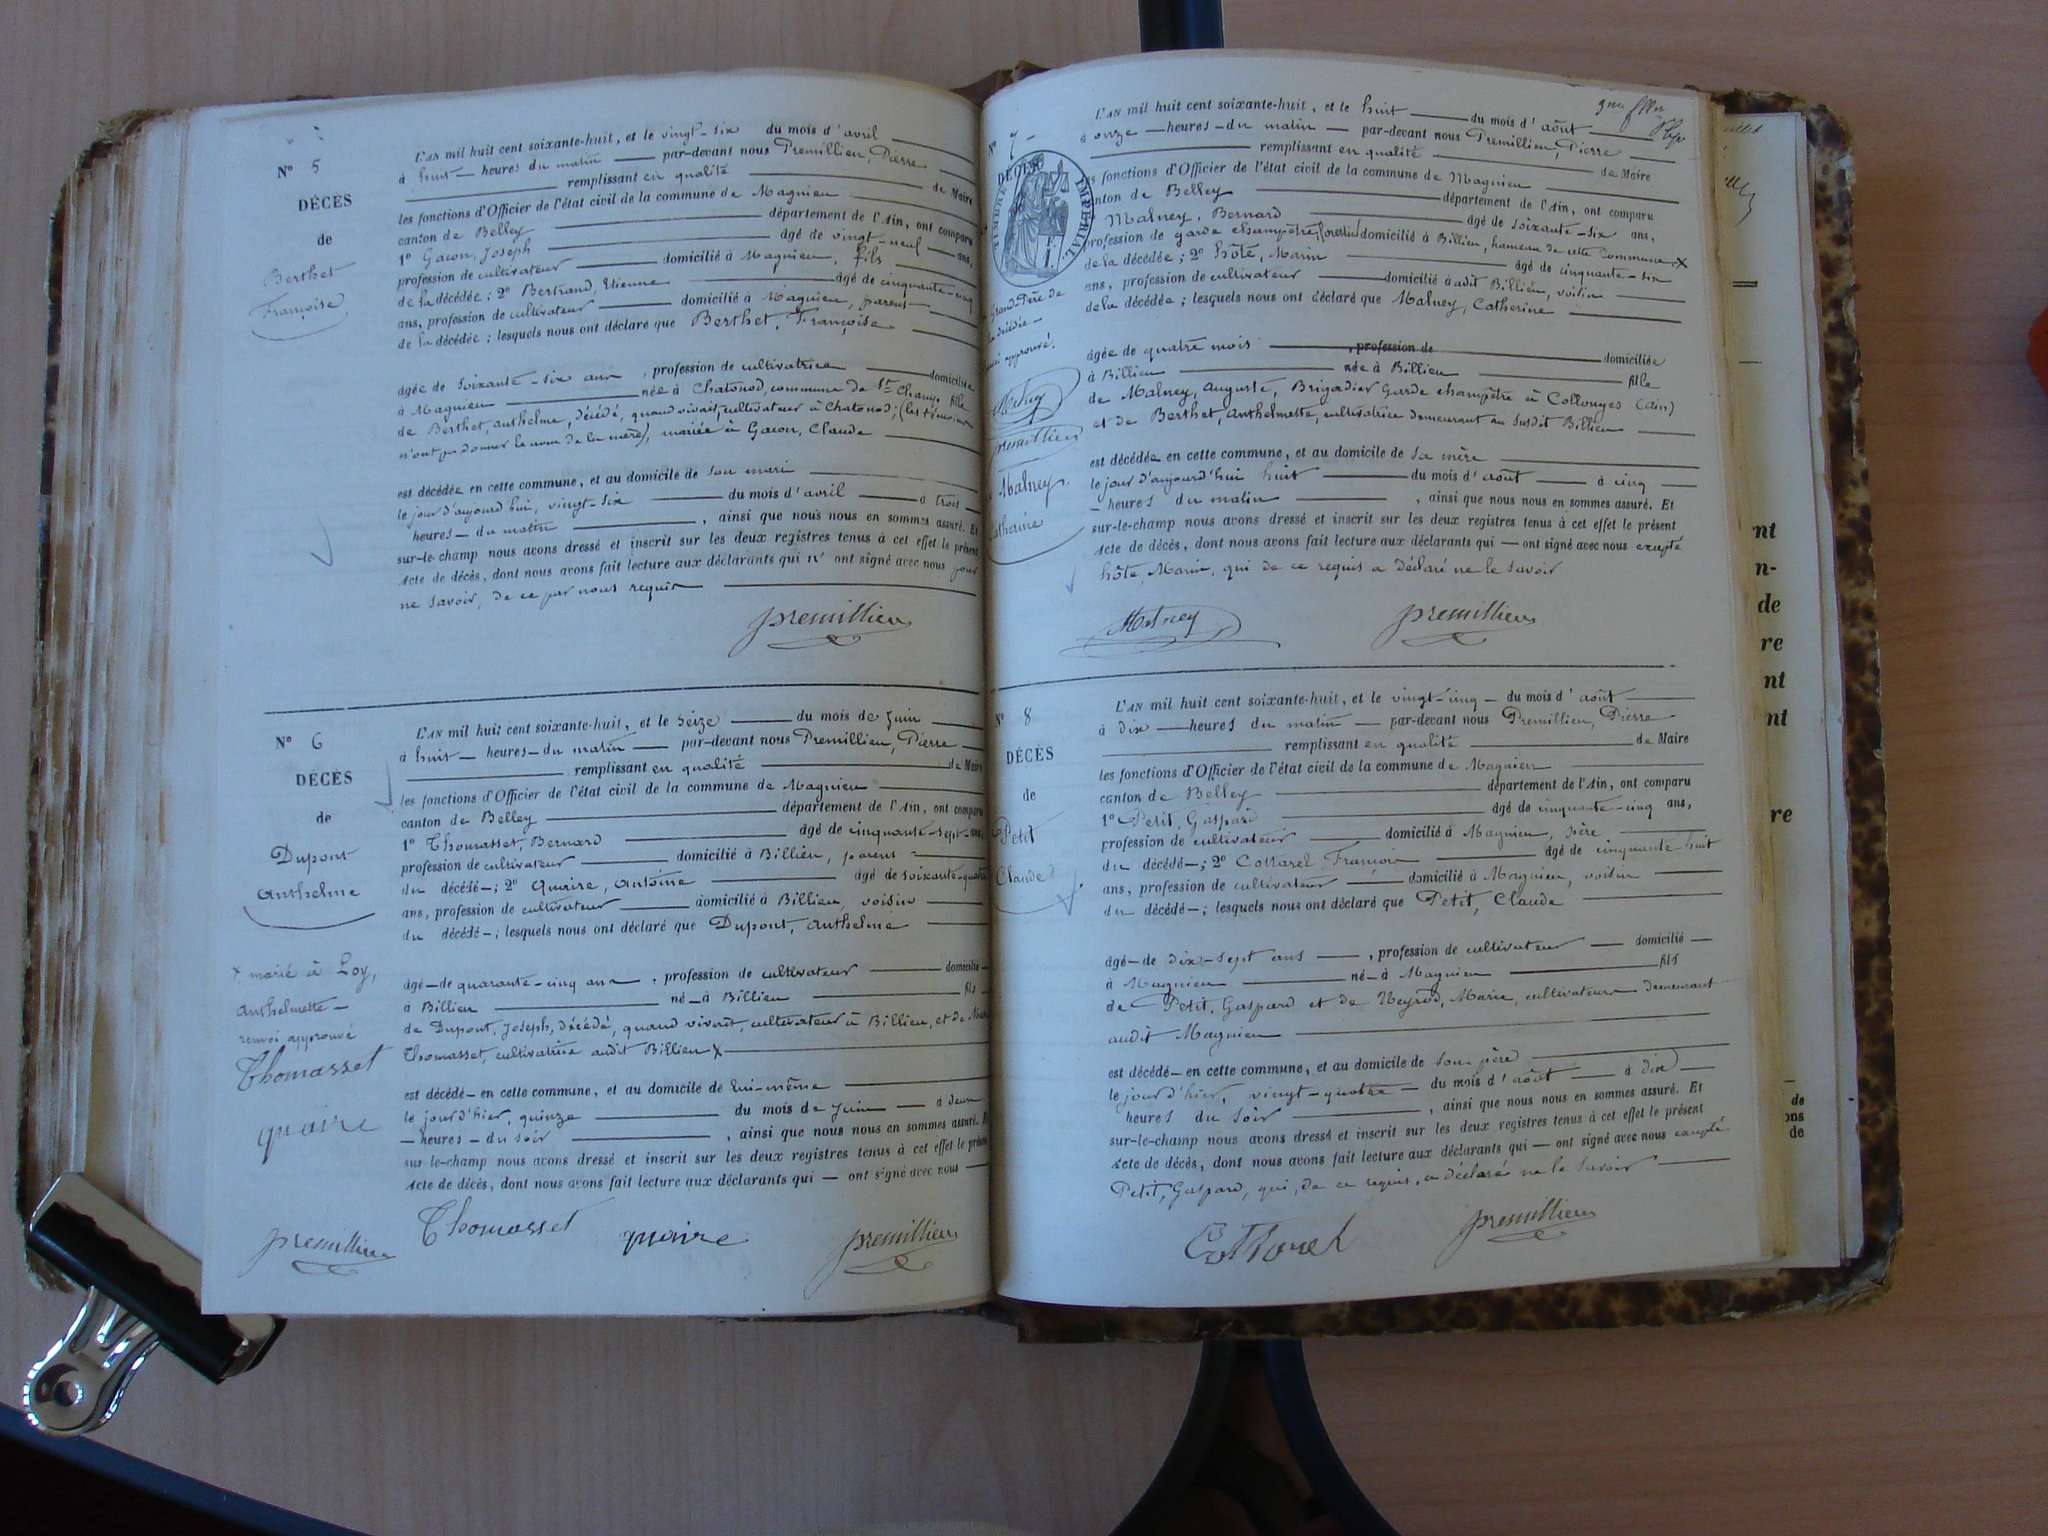 N° 5
DÉCÈS
de
Berthet
Françoise
L'AN mil huit cent soixante-huit, et le vingt-six du mois d'avril
à huit heures du matin par-devant nous Premillieu, Pierre
remplissant en qualité de Maire
les fonctions d'Officier de l'état civil de la commune de Magnieu
canton de Belley département de l'Ain, ont comparu
1° Gacon, Joseph âgé de vingt-neuf ans,
profession de cultivateur domicilié à Magnieu, fils
de la décédée; 2° Bertrand, Etienne âgé de cinquante-cinq
ans, profession de cultivateur domicilié à Magnieu, parent
de la décédée; lesquels nous ont déclaré que Berthet, Françoise
âgée de soixante-six ans, profession de cultivatrice domiciliée
à Magnieu née à Chatonod, commune de St Champ, fille
de Berthet, Anthelme, décédé, quand vivait, cultivateur à Chatonod; (les témoins
n'ont pu donner le nom de la mère), mariée à Gacon, Claude
est décédée en cette commune, et au domicile de son mari
le jour d'aujourd'hui, vingt-six du mois d'avril à trois
heures du matin, ainsi que nous nous en sommes assuré. Et
sur-le-champ nous avons dressé et inscrit sur les deux registres tenus à cet effet le présent
acte de décès, dont nous avons fait lecture aux déclarants qui n'ont signé avec nous pour
ne savoir, de ce par nous requis
Premillieu
N° 6
DÉCÈS
de
Dupont
Anthelme
x marié à Loy,
Anthelmette
renvoi approuvé
Thomasset
quaire
Premillieu
L'AN mil huit cent soixante-huit, et le seize du mois de Juin
à huit heures du matin par-devant nous Premillieu, Pierre
remplissant en qualité de Maire
les fonctions d'Officier de l'état civil de la commune de Magnieu
canton de Belley département de l'Ain, ont comparu
1° Thomasset, Bernard âgé de cinquante-sept ans,
profession de cultivateur domicilié à Billieu, parent
du décédé; 2° Quaire, Antoine âgé de soixante-quatre
ans, profession de cultivateur domicilié à Billieu, voisin
du décédé; lesquels nous ont déclaré que Dupont, Anthelme
âgé de quarante-cinq ans, profession de cultivateur domicilié
à Billieu né à Billieu fils
de Dupont, Joseph, décédé, quand vivait, cultivateur à Billieu, et de
Thomasset, cultivatrice audit Billieu x
est décédé en cette commune, et au domicile de lui-même
le jour d'hier, quinze du mois de Juin à deux
heures du soir, ainsi que nous nous en sommes assuré. Et
sur-le-champ nous avons dressé et inscrit sur les deux registres tenus à cet effet le présent
acte de décès, dont nous avons fait lecture aux déclarants qui ont signé avec nous
Thomasset quaire Premillieu
N° 7
DÉCÈS
TIMBRE IMPÉRIAL
Grand-Père de
la décédée
Premillieu
Malney
Catherine
L'AN mil huit cent soixante-huit, et le huit du mois d'août
à onze heures du matin par-devant nous Premillieu, Pierre
remplissant en qualité de Maire
les fonctions d'Officier de l'état civil de la commune de Magnieu
canton de Belley département de l'Ain, ont comparu
Malney, Bernard âgé de soixante-six ans,
profession de garde champêtre, forestier domicilié à Billieu, hameau de cette Commune x
de la décédée; 2° hôte, Marin âgé de cinquante-six
ans, profession de cultivateur domicilié audit Billieu, voisin
de la décédée; lesquels nous ont déclaré que Malney, Catherine
âgée de quatre mois, profession de domiciliée
à Billieu née à Billieu fille
de Malney, Auguste, Brigadier Garde champêtre à Collonges (Ain)
et de Berthet, Anthelmette, cultivatrice demeurant au susdit Billieu
est décédée en cette commune, et au domicile de sa mère
le jour d'aujourd'hui huit du mois d'août à cinq
heures du matin, ainsi que nous nous en sommes assuré. Et
sur-le-champ nous avons dressé et inscrit sur les deux registres tenus à cet effet le présent
acte de décès, dont nous avons fait lecture aux déclarants qui ont signé avec nous excepté
hôte, Marin, qui de ce requis a déclaré ne le savoir
Malney Premillieu
N° 8
DÉCÈS
de
Petit
Claude
L'AN mil huit cent soixante-huit, et le vingt-cinq du mois d'août
à dix heures du matin par-devant nous Premillieu, Pierre
remplissant en qualité de Maire
les fonctions d'Officier de l'état civil de la commune de Magnieu
canton de Belley département de l'Ain, ont comparu
1° Petit, Gaspard âgé de cinquante-cinq ans,
profession de cultivateur domicilié à Magnieu, père
du décédé; 2° Cottarel, François âgé de cinquante-huit
ans, profession de cultivateur domicilié à Magnieu, voisin
du décédé; lesquels nous ont déclaré que Petit, Claude
âgé de dix-sept ans, profession de cultivateur domicilié
à Magnieu né à Magnieu fils
de Petit, Gaspard et de Neyrod, Marie, cultivateurs demeurant
audit Magnieu
est décédé en cette commune, et au domicile de son père
le jour d'hier, vingt-quatre du mois d'août à dix
heures du soir, ainsi que nous nous en sommes assuré. Et
sur-le-champ nous avons dressé et inscrit sur les deux registres tenus à cet effet le présent
acte de décès, dont nous avons fait lecture aux déclarants qui ont signé avec nous excepté
Petit, Gaspard, qui, de ce requis, a déclaré ne le savoir
Cottarel Premillieu